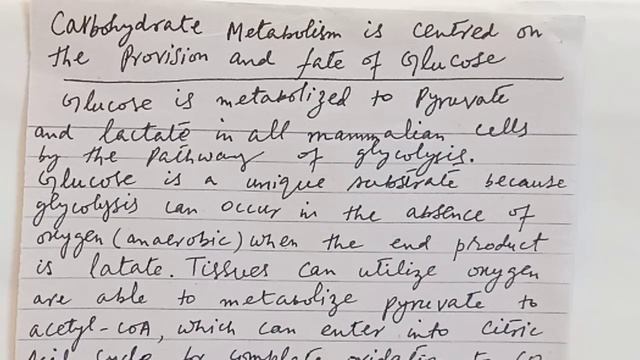 Carbohydrate Metabolism is centred on
the Provision and fate of Glucose
Glucose is metabolized to Pyruvate
and lactate in all mammalian cells
by the Pathway of glycolysis.
Glucose is a unique substrate because
glycolysis can occur in the absence of
oxygen (anaerobic) when the end product
is latate. Tissues can utilize oxygen
are able to metabolize pyruvate to
acetyl-CoA, which can enter into Citric
Acid Cycle for complete oxidation to CO